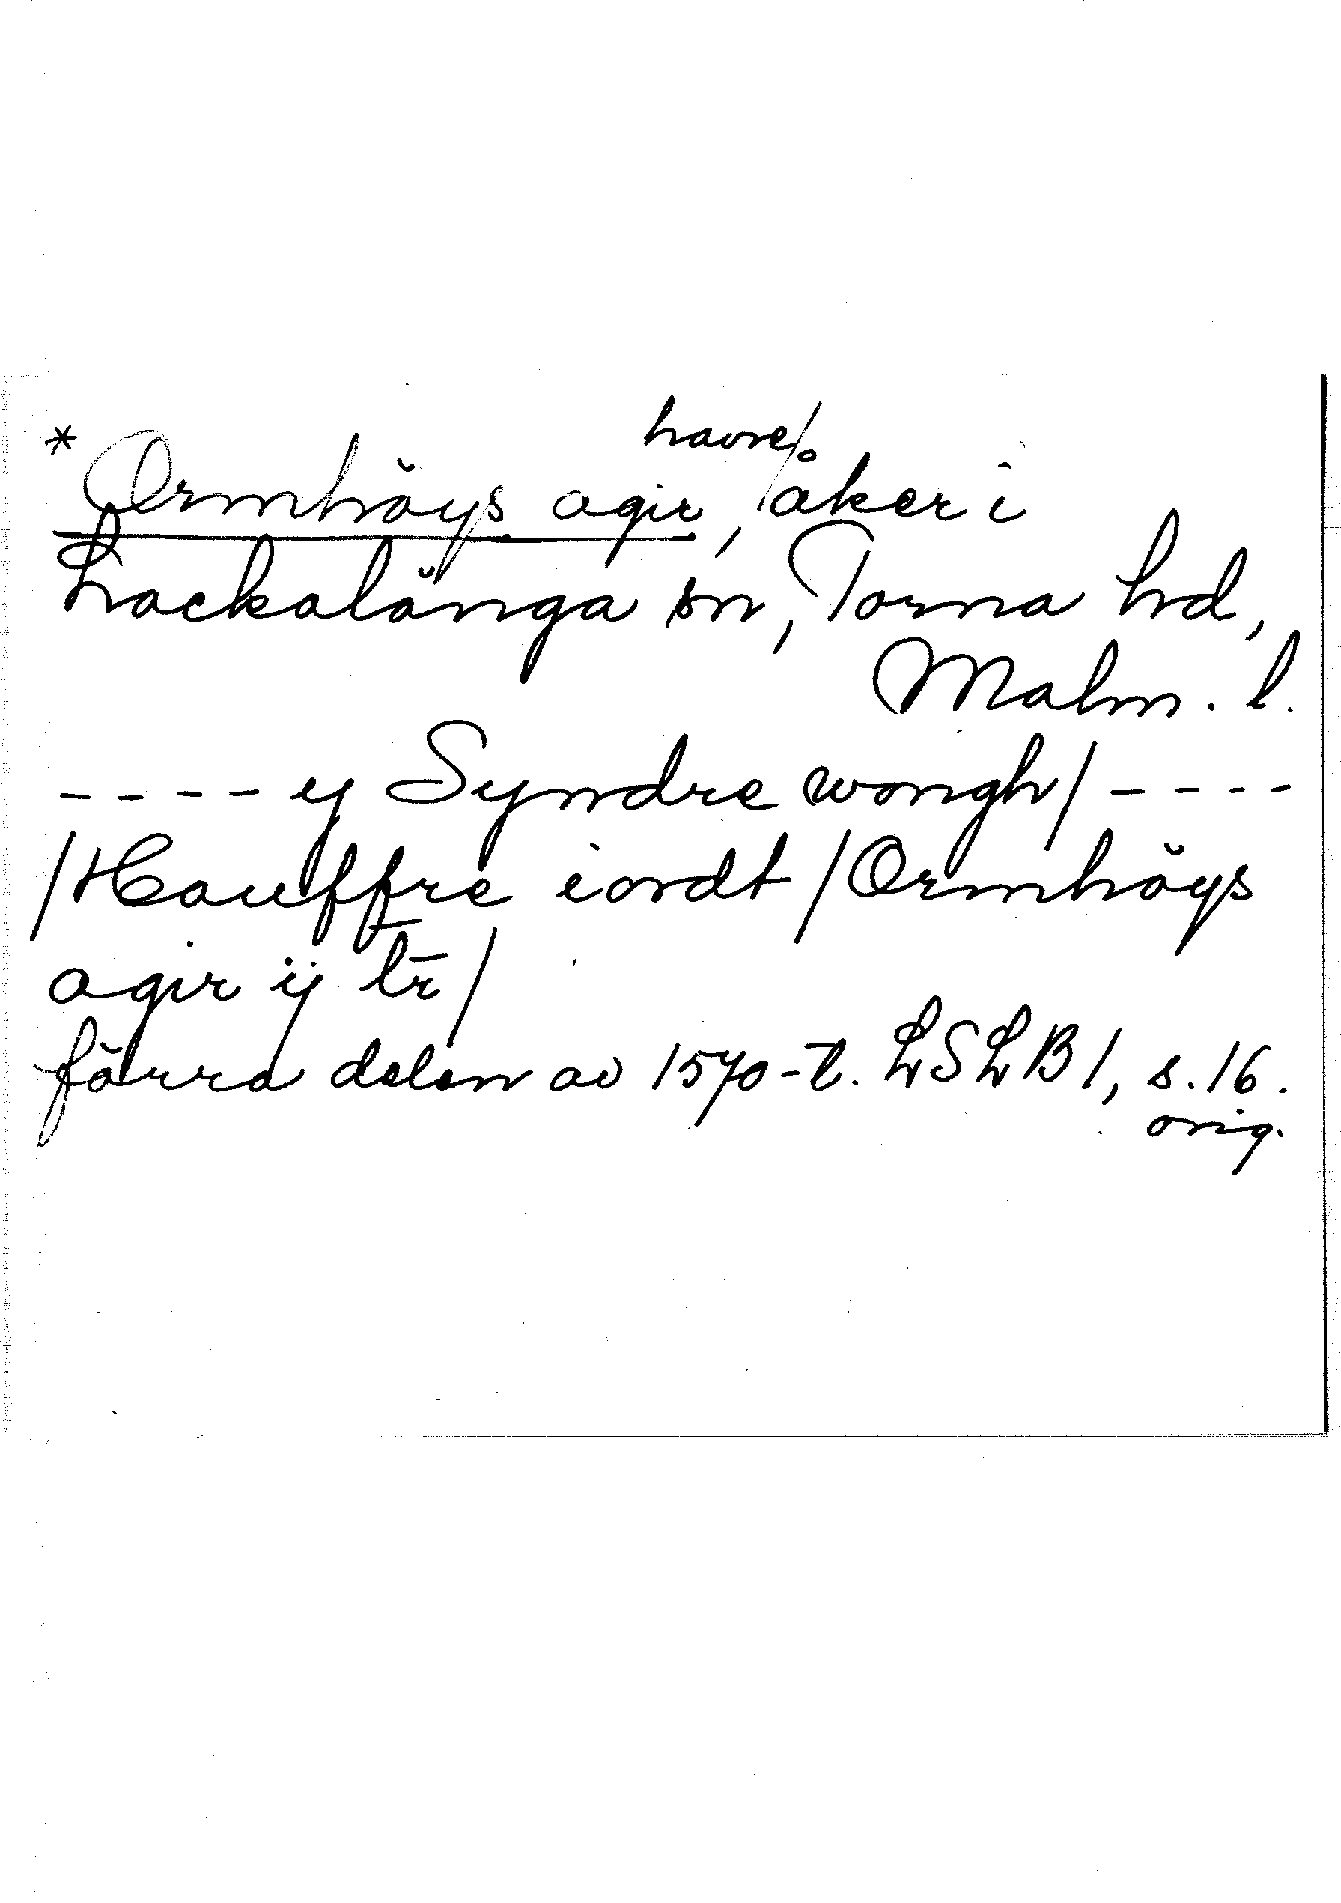 *
Ormhöys agir, havre/åker i
Lackalänga sn, Torna hd,
Malm. l.
---- y Syndre wongh/ ----
/Hauffre iordt /Ormhöys
agir ij lr̄/
förra delen av 1570-t. LSLB 1, s. 16.
orig.